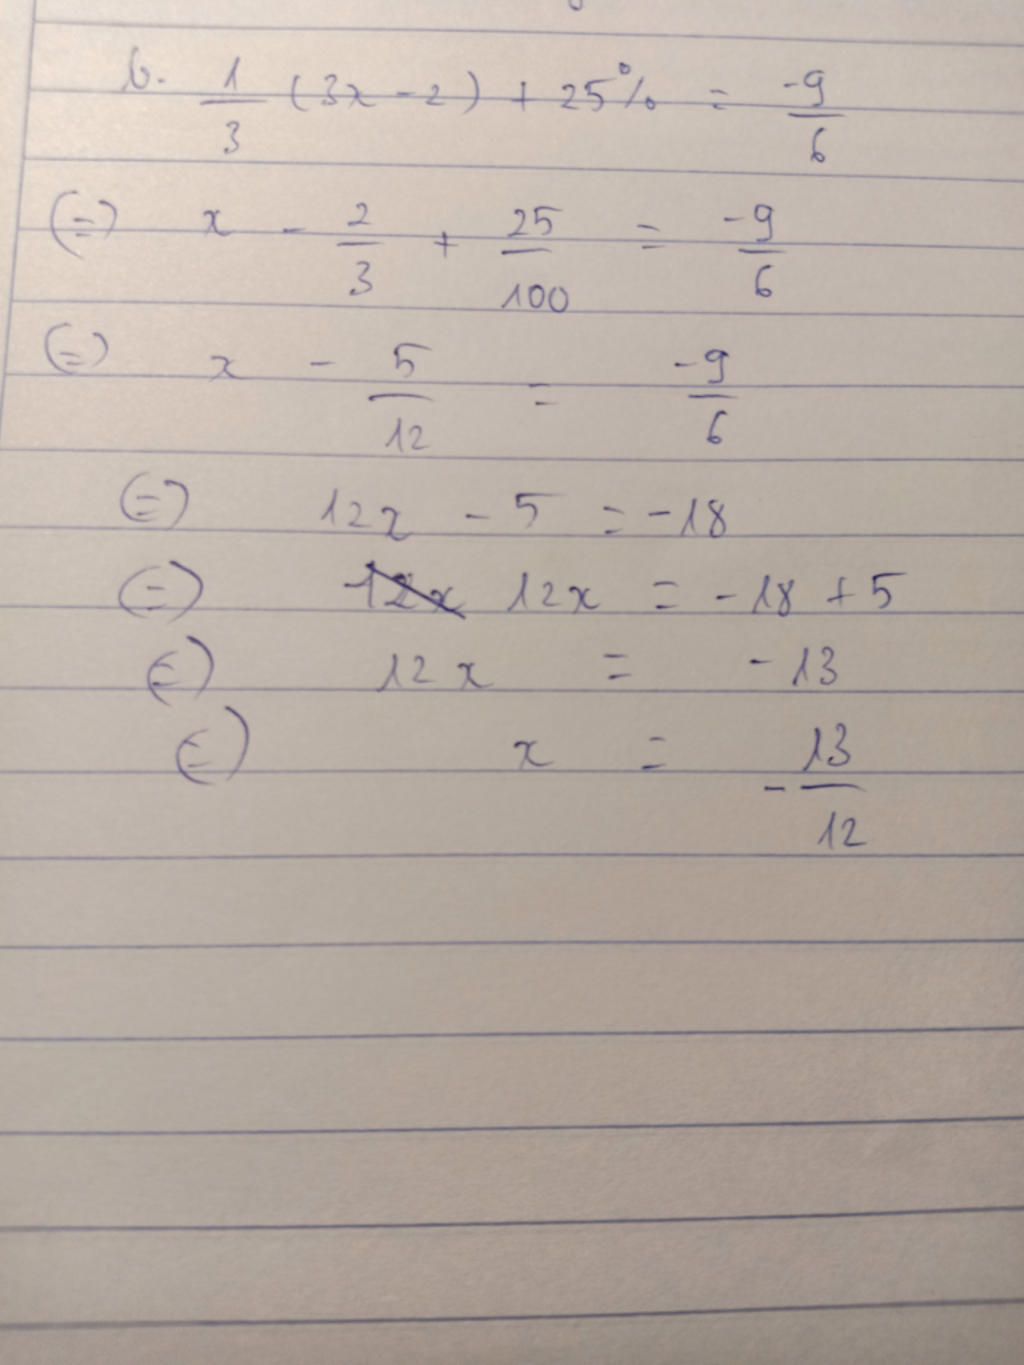 b. 1/3 (3x - 2) + 25% = -9/6
(=) x - 2/3 + 25/100 = -9/6
(=) x - 5/12 = -9/6
(=) 12x - 5 = -18
(=) 12x = -18 + 5
(=) 12x = -13
(=) x = -13/12